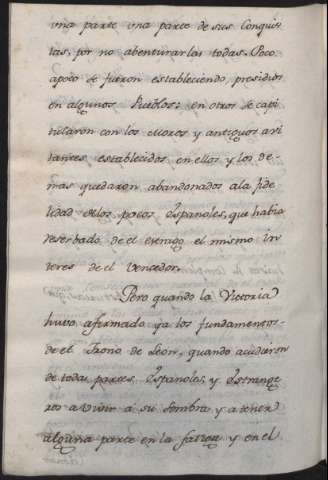 una parte una parte de sus Conquis-
tas, por no abenturarlas todas. Poco
apoco se fueron estableciendo, presidios
en algunos Pueblos: en otros se capi-
tularon con los Moros y antiguos avi-
tantes establecidos en ellos y los de-
mas quedaron abandonados ala fide
lidad delos pocos Españoles, que habia
reserbado de el enemigo el mismo in
teres de el Vencedor.
Pero quando la Victoria
huvo afirmado ya los fundamentos
de el Trono de Leon, quando acudieron
de todas partes, Españoles, y Estrange
ros a vivir á su Sombra, y atener
alguna parte en la y en el